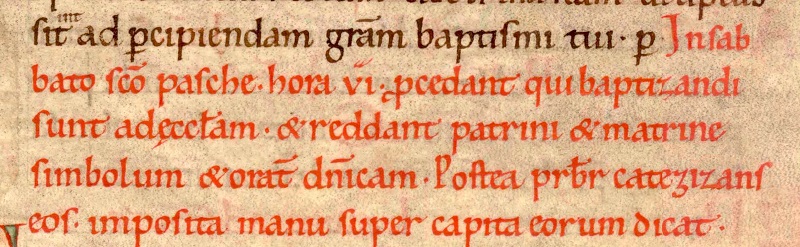 sit ad ꝑcipiendam grãm baptismi tui · ꝑ Insab
bato sc̄o pasche · hora vi · ꝓcedant qui baptizandi
sunt ad ęccl̄am · & reddant patrini & matrine
simbolum & orat̄ dn̄icam · Postea prbr̄ catezizans
eos · imposita manu super capita eorum dicat ·